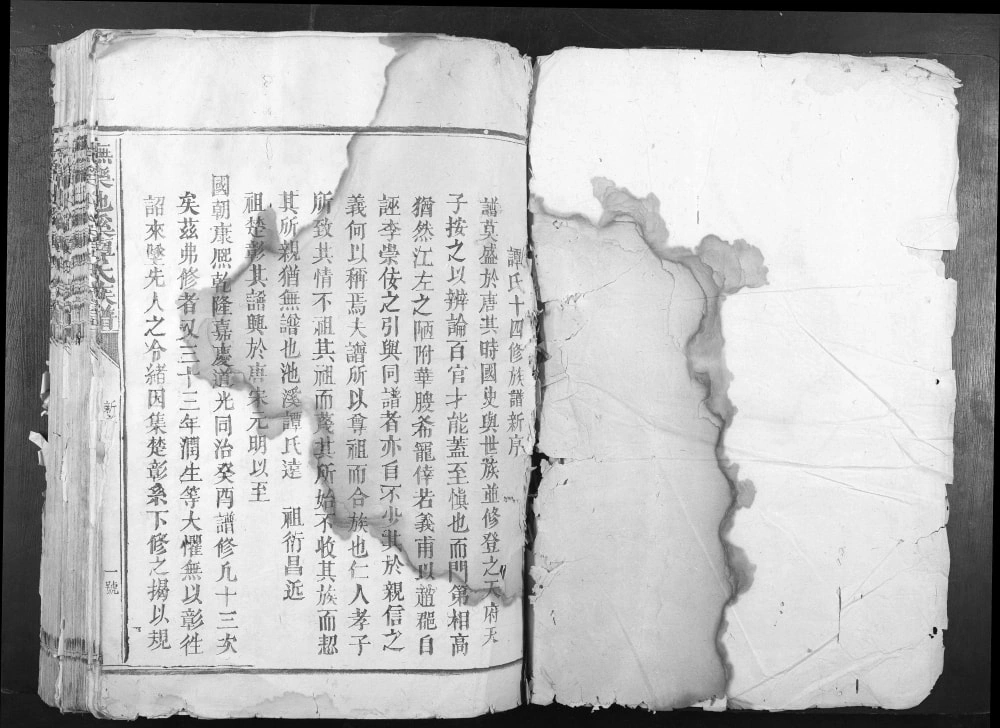 譚氏十四修族譜新序
譜莫盛於唐其時國史與世族並修登之天府天
子按之以辨論百官才能蓋至愼也而門第相高
猶然江左之陋附華腴希寵倖若義甫以趙郡自
誣李崇伖之引與同譜者亦自不少其於親信之
義何以稱焉夫譜所以尊祖而合族也仁人孝子
所致其情不祖其祖而蔑其所始不收其族而恝
其所親猶無譜也池溪譚氏遠祖衎昌近
祖楚彰其譜興於唐宋元明以至
國朝康熙乾隆嘉慶道光同治癸酉譜修凢十三次
矣茲弗修者又三十三年潤生等大懼無以彰徃
詔來墜先人之令緒因集楚彰系下修之揭以規
撫樂池溪譚氏族譜
新序
一號